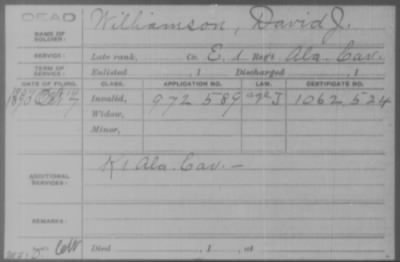 DEAD
NAME OF SOLDIER: Williamson, David J.
SERVICE: Late rank, Co. E, 1 Reg't Ala. Cav.
TERM OF SERVICE: Enlisted , 1 Discharged , 1
DATE OF FILING. CLASS. APPLICATION NO. LAW. CERTIFICATE NO.
Invalid, 972 589 1062 524
Widow,
Minor,
ADDITIONAL SERVICES: K 1 Ala. Cav. —
REMARKS:
Died , 1 , at